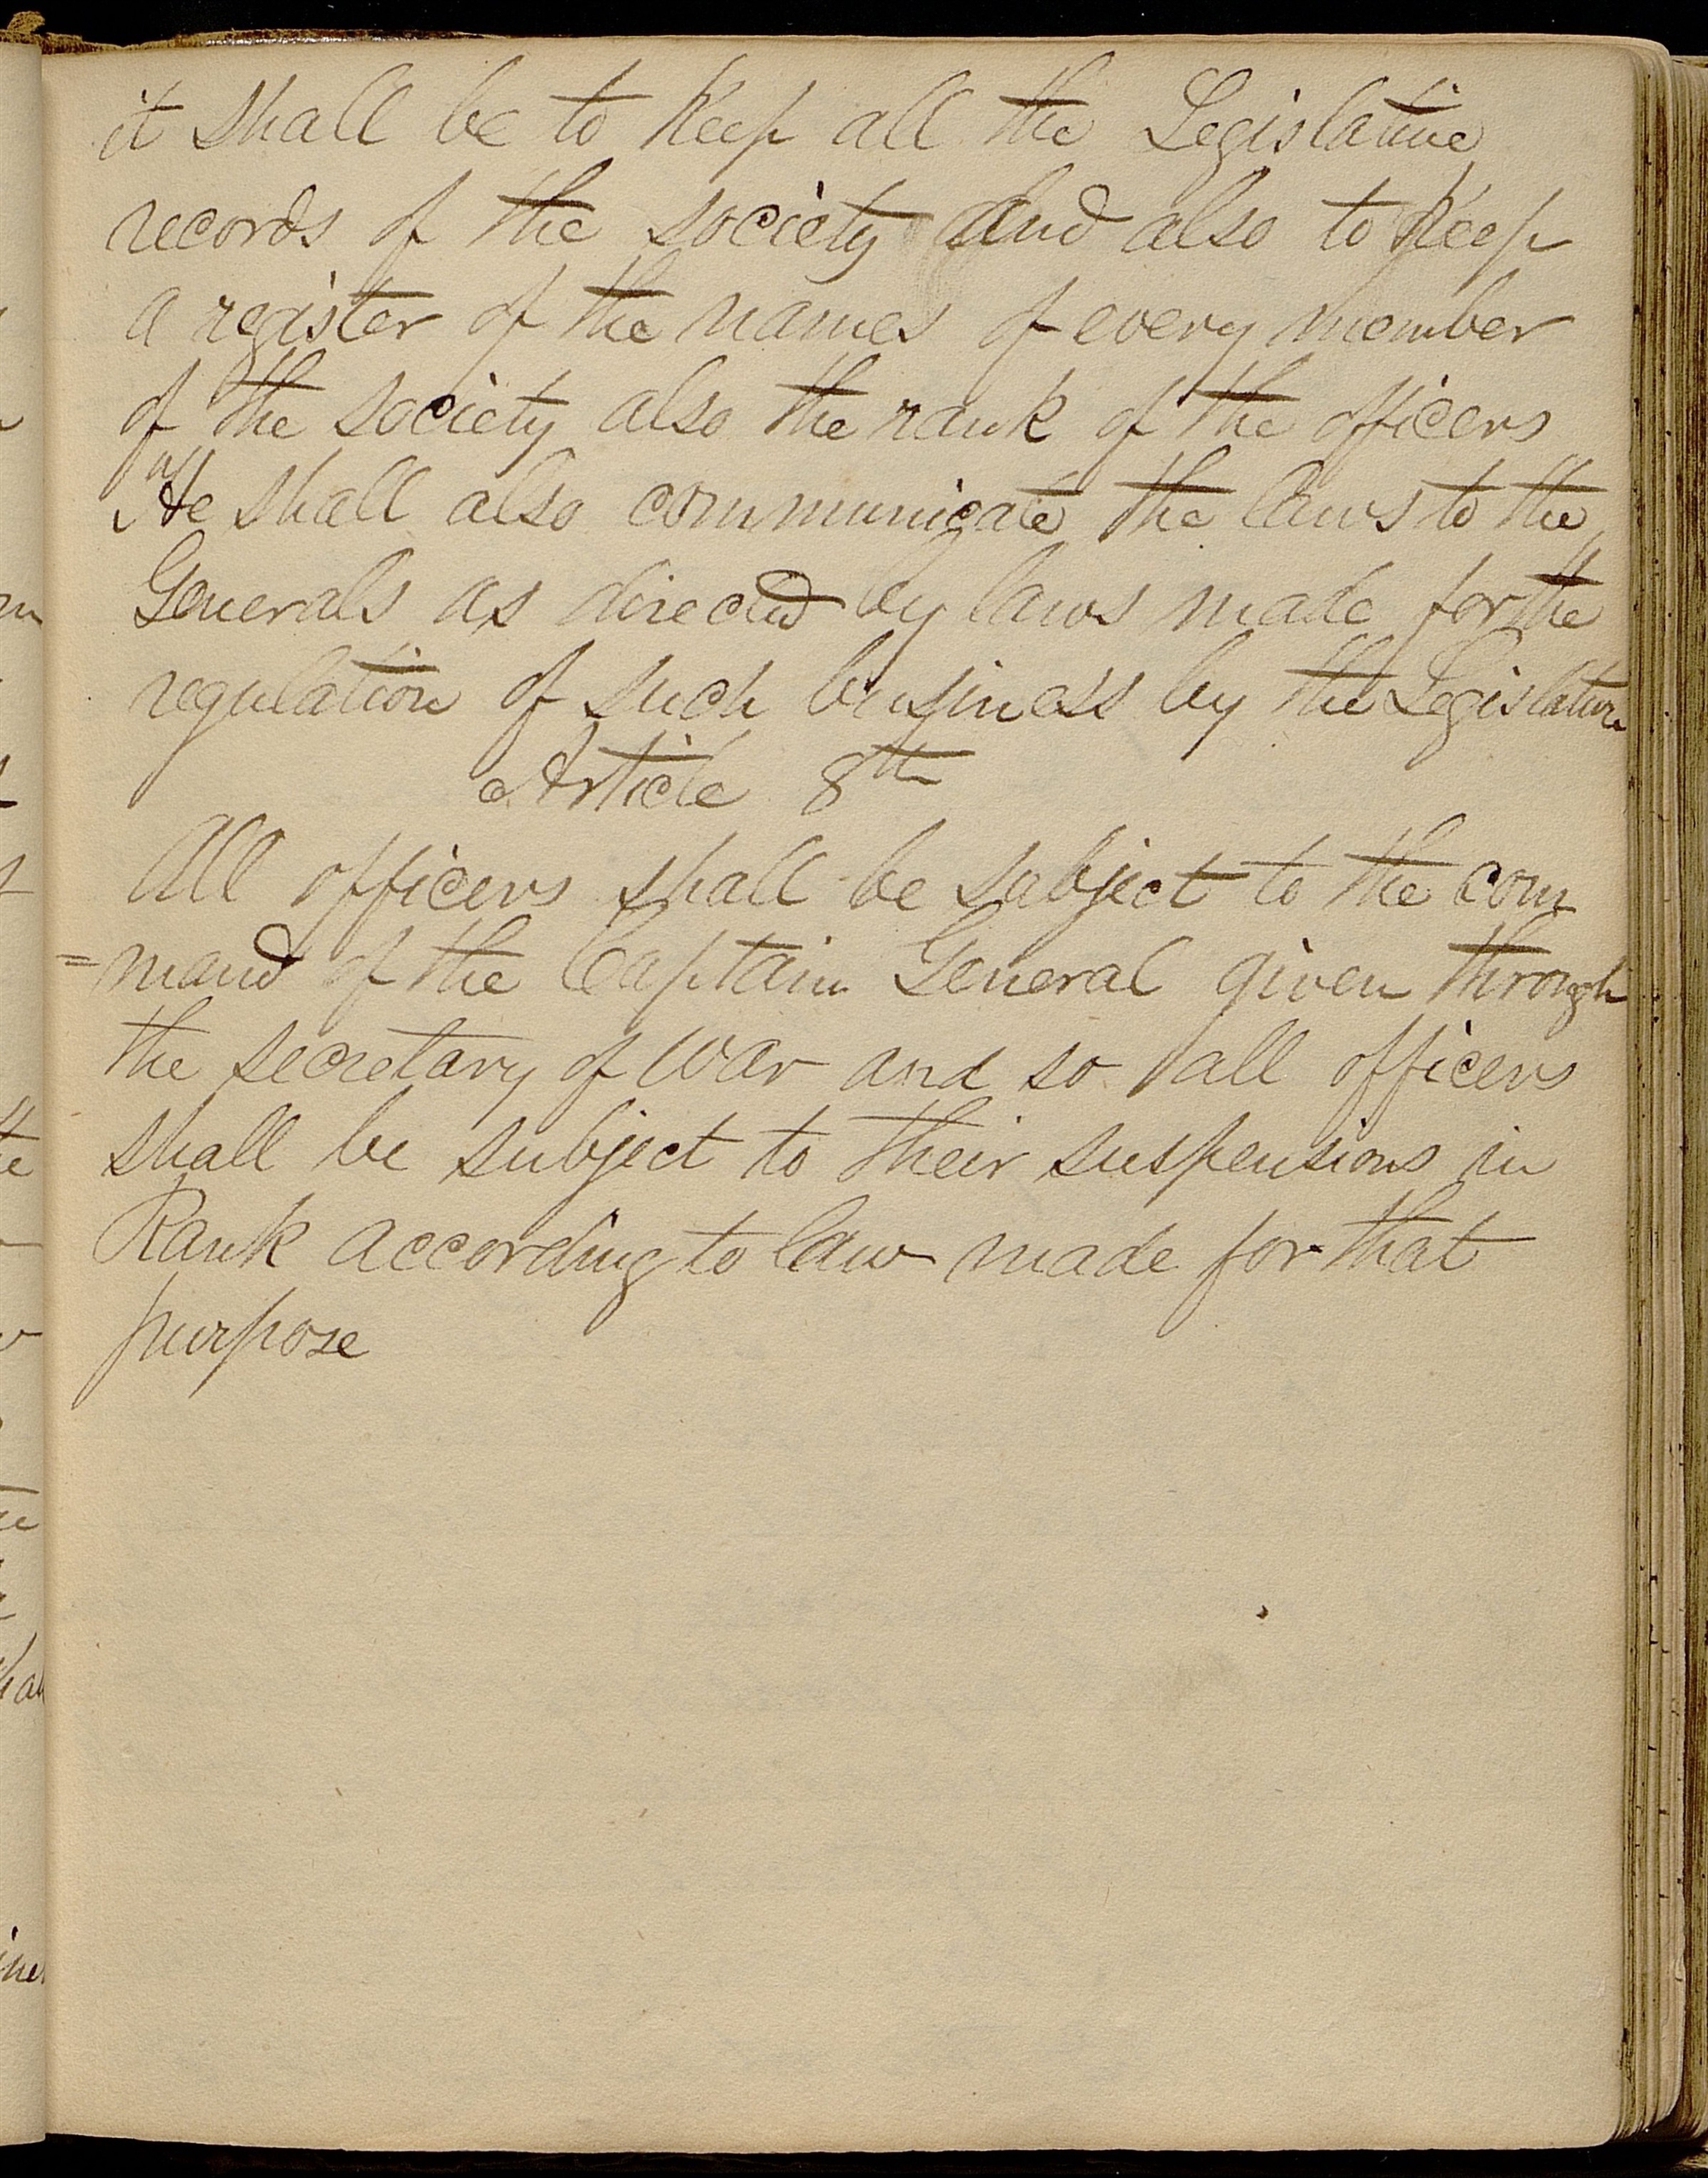 it shall be to Keep all the Legislative
records of the society And also to Keep
a register of the names of every member
of the society also the rank of the officers
He shall also communicate the laws to the
Generals as directed by laws made for the
regulation of such business by the Legislature
Article 8th
All officers shall be subject to the com
=mand of the Captain General given through
the secretary of war and so all officers
shall be subject to their suspensions in
Rank according to law made for that
purpose